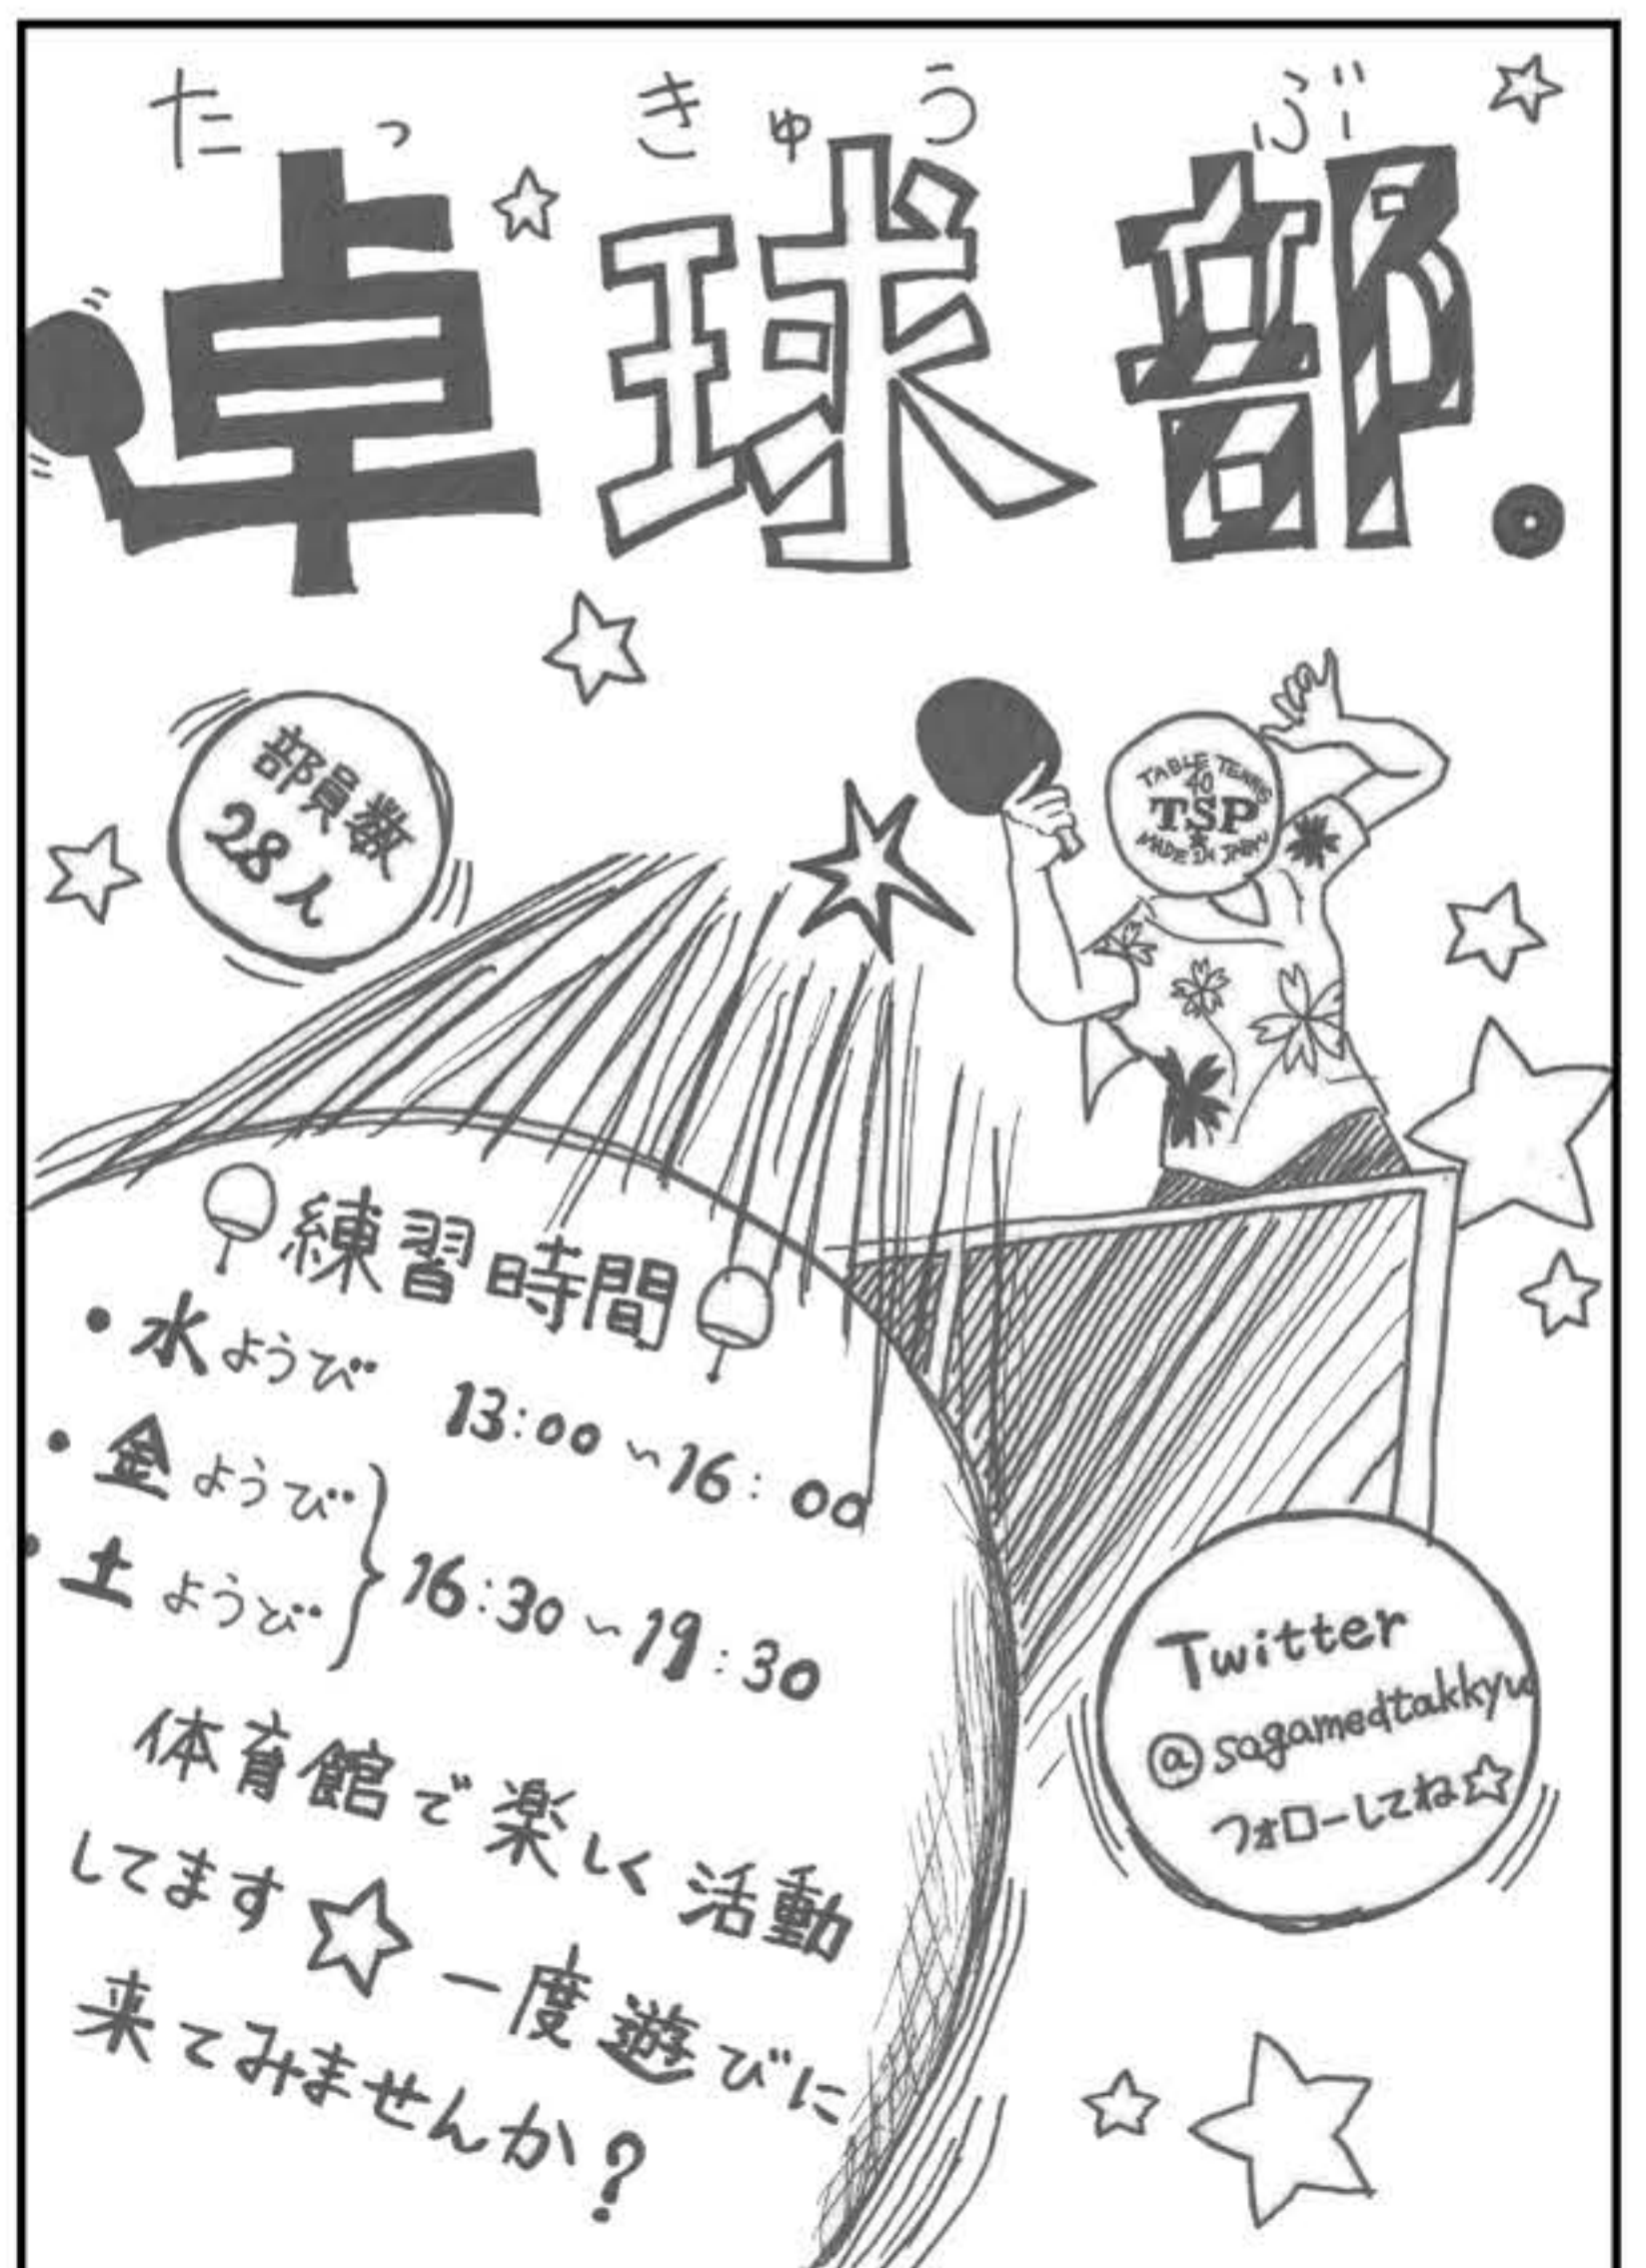 たっきゅうぶ
卓球部.
部員数
28人
TABLE TENNIS
40
TSP
MADE IN JAPAN
練習時間
・水ようび 13:00~16:00
・金ようび
・土ようび
16:30~19:30
体育館で楽しく活動
してます☆一度遊びに
来てみませんか?
Twitter
@sagamedtakkyu
フォローしてね☆